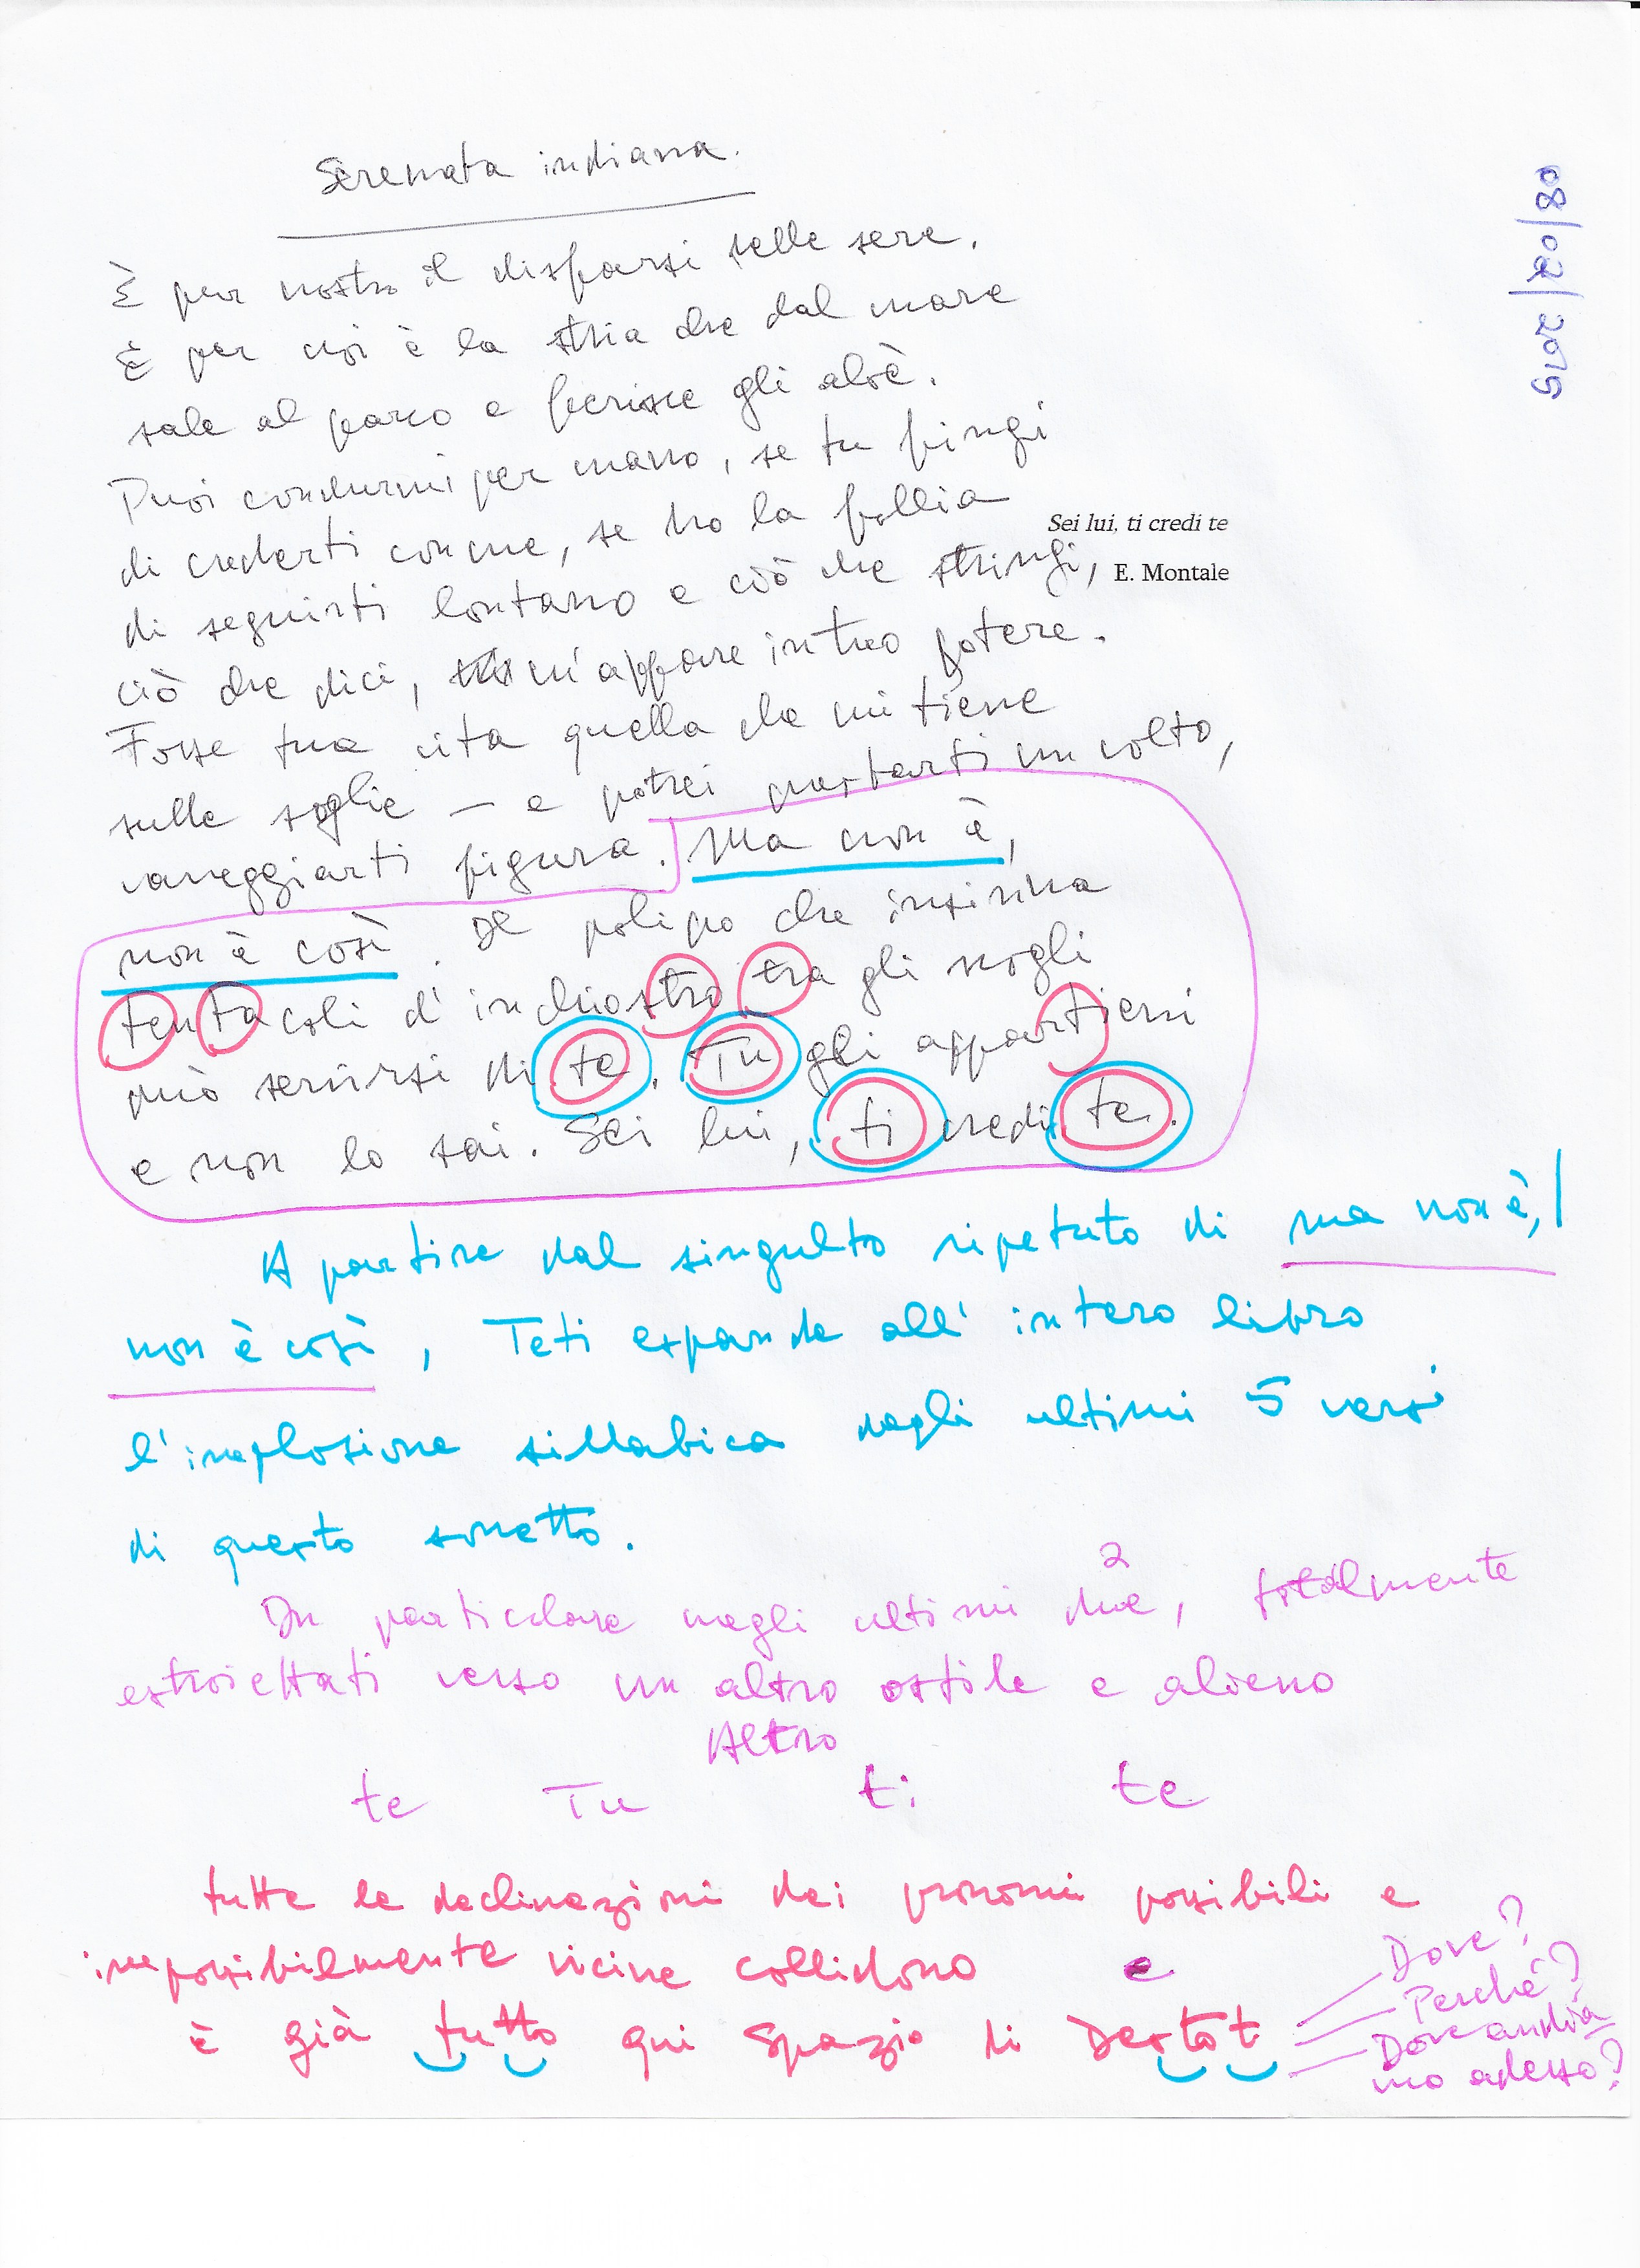 Serenata indiana.
08/02/2019
È pur nostro il disfarsi delle sere.
E per noi è la stria che dal mare
sale al parco e ferisce gli aloè.
Puoi condurmi per mano, se tu fingi
di crederti con me, se ho la follia
di seguirti lontano e ciò che stringi,
Sei lui, ti credi te
E. Montale
ciò che dici, m'appare in tuo potere.
Fosse tua vita quella che mi tiene
sulle soglie – e potrei prestarti un volto,
vaneggiarti figura. Ma non è,
non è così. Il polipo che insinua
tentacoli d'inchiostro tra gli scogli
può servirsi di te. Tu gli appartieni
e non lo sai. Sei lui, ti credi te.
A partire dal singulto ripetuto di ma non è, /
non è così, Teti espande all'intero libro
l'implosione sillabica negli ultimi 5 versi
di questo sonetto.
In particolare negli ultimi due, totalmente
2
estroiettati verso un altro ostile e alieno
Altro
te Tu ti te
tutte le declinazioni dei pronomi possibili e
impossibilmente vicine collidono e
è già tutto qui Spazio di Destot
Dove?
Perché?
Dove andia
mo adesso?